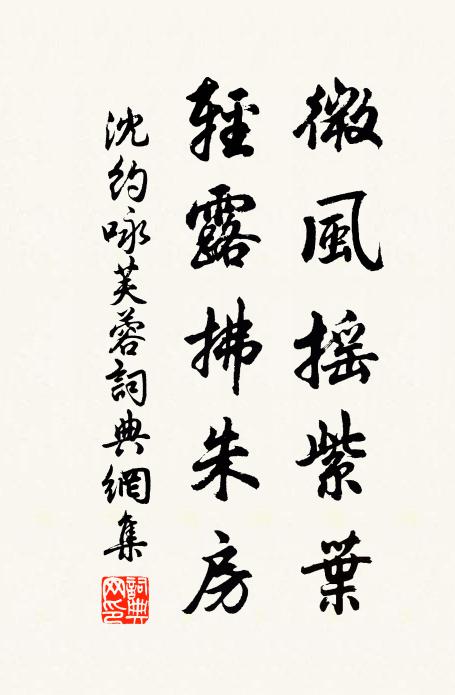 微風摇紫葉
輕露拂朱房
沈約咏芙蓉詞典網集
詞典網印